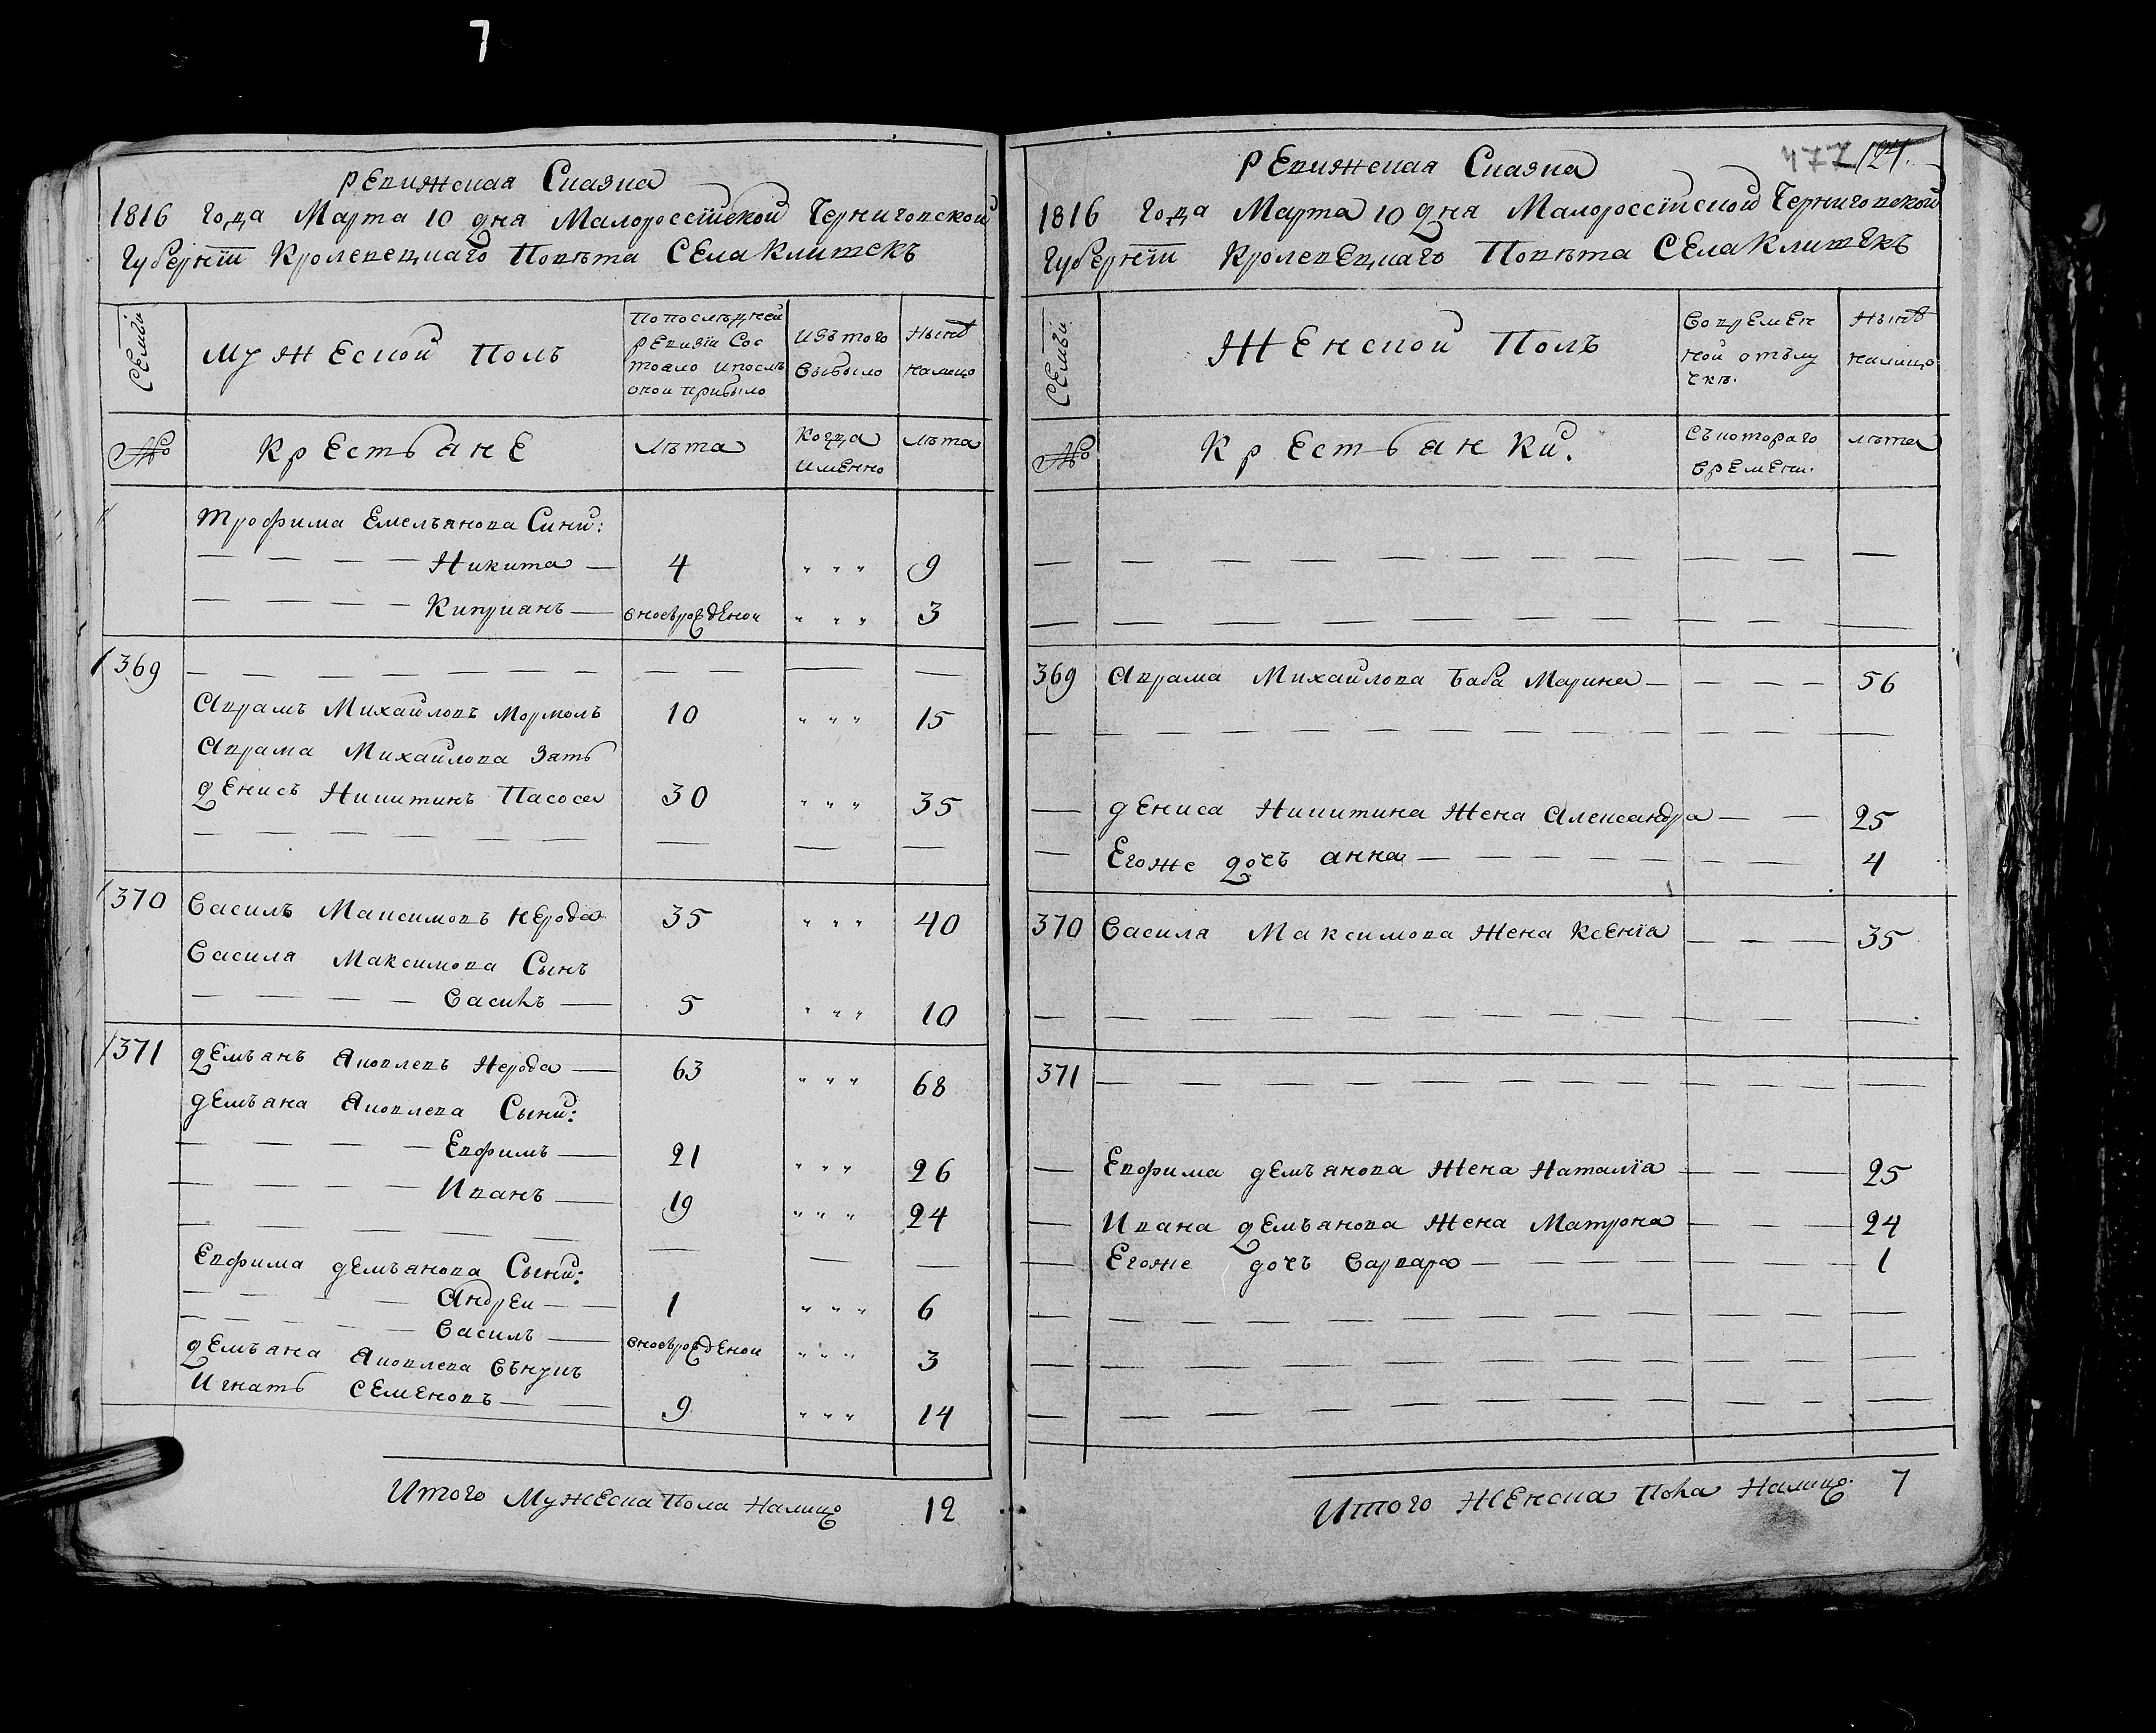 7
Ревижская Сказка
1816 Года Марта 10 дня Малороссійской Черниговской
Губерніи Кролевецкаго Повѣта Села Клитекъ
Семьи
Мужеской Полъ
По последней
ревизіи Сос
тояло и после
оной прибыло
Изътого
выбыло
Нынѣ
налицо
№
Крестьяне
лѣта
Когда
имЕнно
лѣта
Трофима Емельянова Сини:
— — — — Никита — 4 " " " 9
— — — — Киприанъ — вносврождЕной " " " 3
369 — — — — — — — — — —
Аврамъ Михайловъ Мормоль 10 " " " 15
Аврама Михайлова Зять
Денисъ Никитинъ Пасоса 30 " " " 35
— — — — — — — — — —
370 Василь Максимовъ Нерода 35 " " " 40
Василя Максимова Сынъ
— — — — Василь — 5 " " " 10
371 Демъянъ Яковлевъ Нерода — 63 " " " 68
Демъяна Яковлева Сыни:
— — — — Евфимъ — 21 " " " 26
— — — — Иванъ — 19 " " " 24
— — — — — — — — —
Евфима Демъянова Сыни:
— — — — Андрей — — 1 " " " 6
— — — — Василь — вносврождЕной " " " 3
Демъяна Яковлева Внукъ
Игнатъ Семеновъ — — 9 " " " 14
Итого Мужеска Пола Налицо 12
477 124.
Ревижская Сказка
1816 Года Марта 10 дня Малороссійской Черниговской
Губерніи Кролевецкаго Повѣта Села Клитекъ
Семьи
Женской Полъ
Вовремен
ной отълу
чкѣ.
Нынѣ
налицо
№
Крестьянки.
Съкотораго
времени.
лѣта
— — — — — — — — — — —
— — — — — — — — — — —
369 Аврама Михайлова Баба Марина — — — — 56
— — — — — — — — — — —
— Дениса Никитина Жена Александра — — 25
— Егоже дочъ Анна — — — — — — — — 4
370 Василя Максимова Жена Ксенія — — — 35
— — — — — — — — — — —
371 — — — — — — — — — — —
— Евфима Демъянова Жена Наталія — — — 25
— Ивана Демъянова Жена Матрона — — — 24
— Егоже дочъ Варвара — — — — — — — 1
— — — — — — — — — — —
— — — — — — — — — — —
— — — — — — — — — — —
Итого Женска Пола Налицо. 7